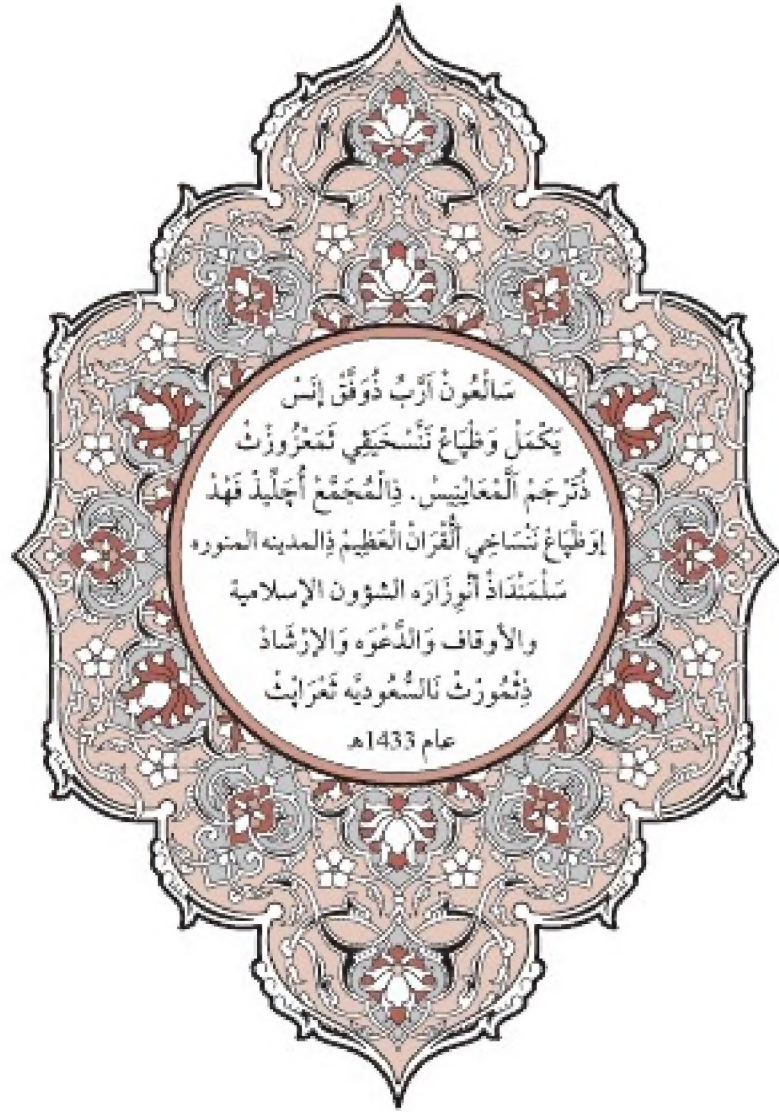 سَالْعُونْ اَرَّبِّ ذُوَفَّقْ إِنَسْ
يَكْمَلْ وَظْپَاعْ تَنُّسْخَيَڤِي تَمَعْزُوزْثْ
ذُتَرْجَمْ اَلْمَعَانِيِيسْ. ذِالْمُجَمَّعْ أُجَلِّيذْ فَهْدْ
إِوَظْپَاعْ نَنْسَاخِي اَلْقُرَانْ الْعَظِيمْ ذِالمدينه المنوره
سَلْمَنْدَاذْ اَنْوِزَارَه الشؤون الإسلامية
والأوقاف وَالدَّعْوَه وَالإِرْشَادْ
ذِثْمُورْثْ نَالسُّعُوديَّه ثَعْرَاپْثْ
عام 1433هـ